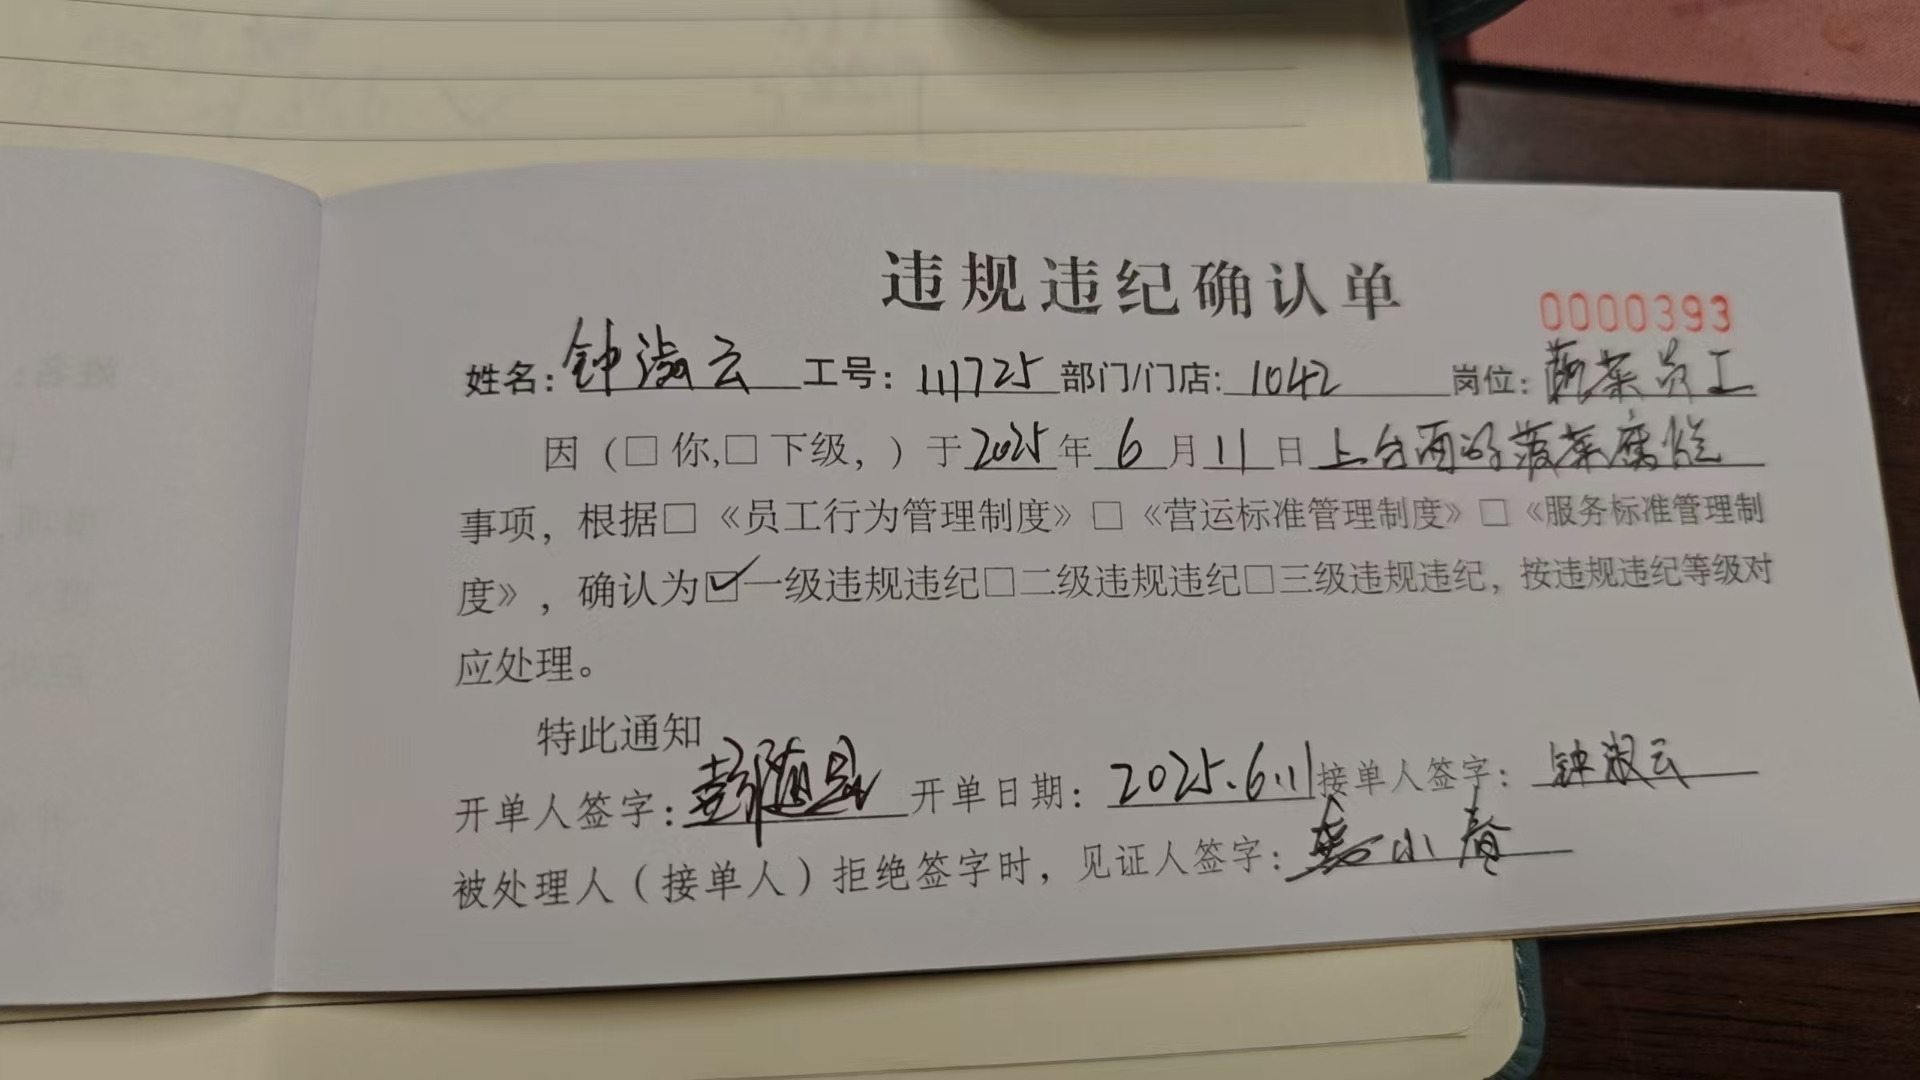 违规违纪确认单
0000393
姓名：钟淑云 工号：111725 部门/门店：1042 岗位：蔬菜员工
因（□你,□下级，）于2025年6月11日上台面的菠菜腐烂
事项，根据□《员工行为管理制度》□《营运标准管理制度》□《服务标准管理制
度》，确认为☑一级违规违纪□二级违规违纪□三级违规违纪，按违规违纪等级对
应处理。
特此通知
开单人签字： 开单日期：2025.6.11 接单人签字：钟淑云
被处理人（接单人）拒绝签字时，见证人签字：小春